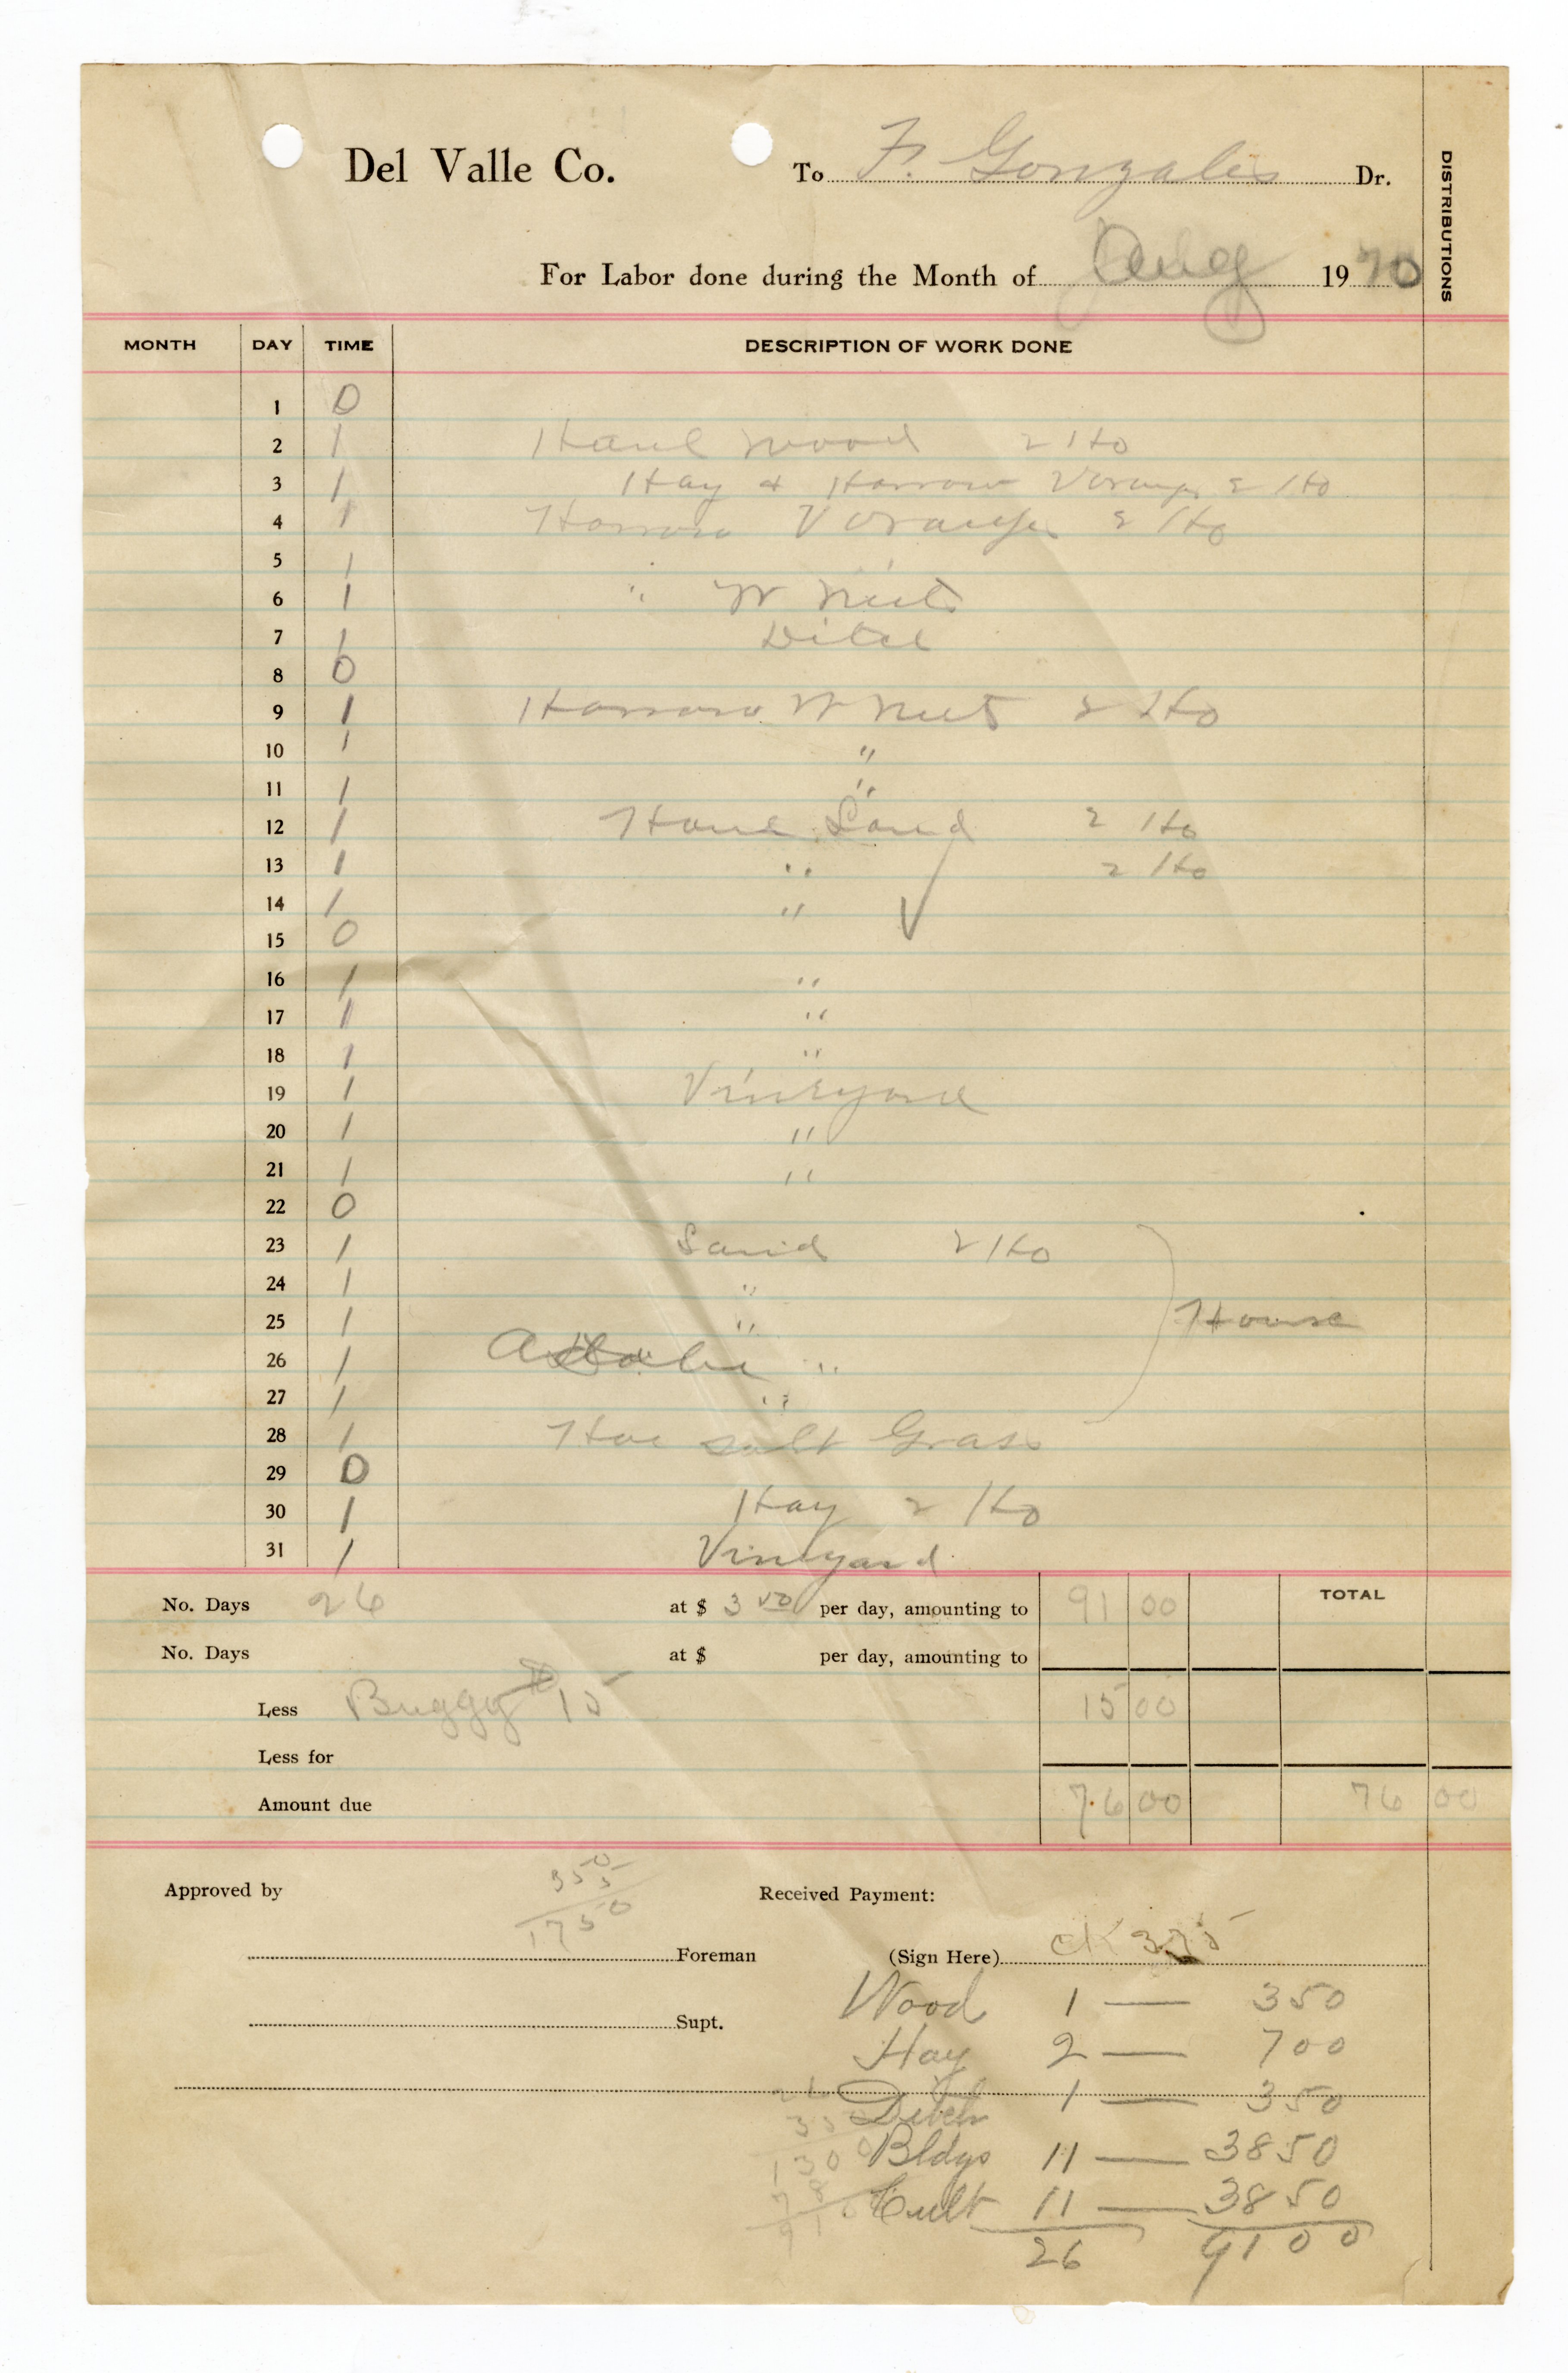 Del Valle Co. To F. Gonzales Dr.
DISTRIBUTIONS
For Labor done during the Month of Aug 1920
MONTH DAY TIME DESCRIPTION OF WORK DONE
1 0
2 1 Haul Wood 2 Ho
3 1 Hay & Harrow V Oranges 2 Ho
4 1 Harrow V Oranges 2 Ho
5 1 "
6 1 " W Nuts
7 1 Ditch
8 0
9 1 Harrow W Nuts 2 Ho
10 1 "
11 1 "
12 1 Haul Sand 2 Ho
13 1 " 2 Ho
14 1 "
15 0
16 1 "
17 1 "
18 1 "
19 1 Vineyard
20 1 "
21 1 "
22 0
23 1 Sand 2 Ho
24 1 "
25 1 " House
26 1 "
27 1 "
28 1 Hoe Salt Grass
29 0
30 1 Hay 2 Ho
31 1 Vineyard
No. Days 26 at $ 3 50 per day, amounting to 91 00 TOTAL
No. Days at $ per day, amounting to
Less Buggy 15 15 00
Less for
Amount due 76 00 76 00
350
5
1750
Approved by Received Payment:
Foreman (Sign Here) CK 375
Supt.
Wood 1 — 350
Hay 2 — 700
Ditch 1 — 350
Bldgs 11 — 3850
Cult 11 — 3850
26 9100
26
350
1300
78
9100